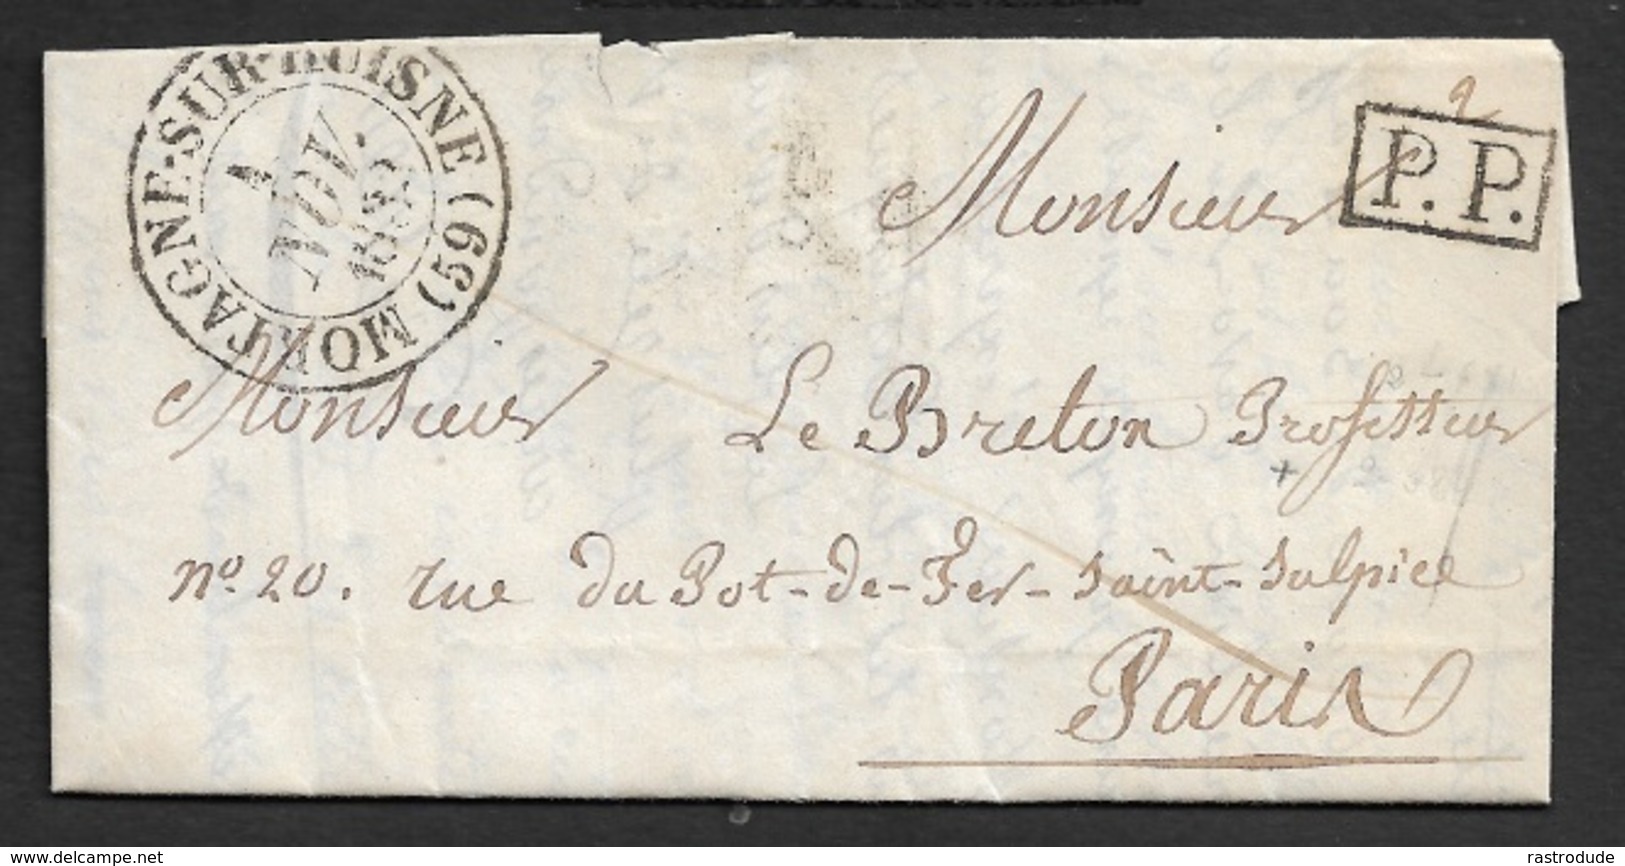 MORTAGNE-SUR-HUISNE (59)
4
NOV.
P.P.
Monsieur
Monsieur Le Breton Professeur
nº 20. rue du Pot-de-Fer-Saint-Sulpice
Paris
www.delcampe.net
rastrodude